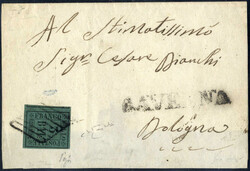 Al Stimatissimo
Sigr Cesare Bianchi
RAVENNA
Bologna
FRANCO